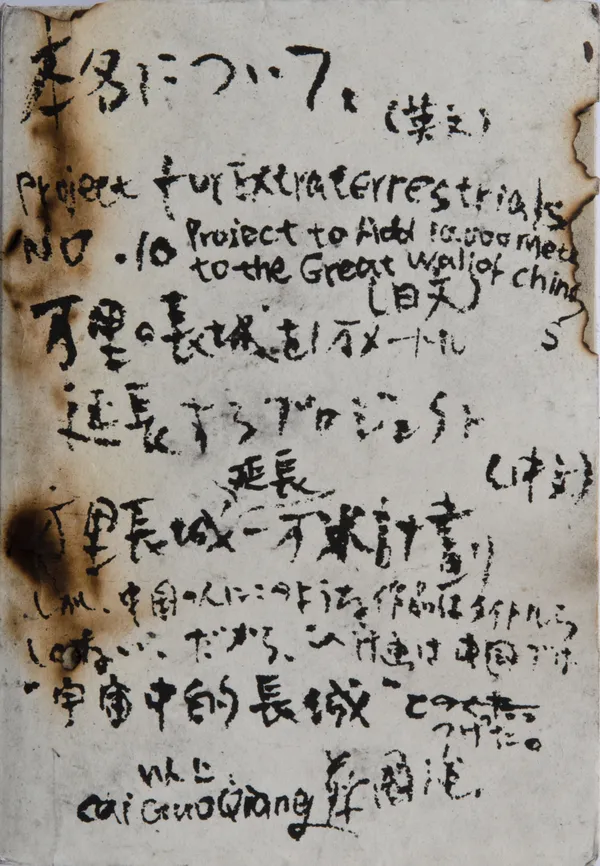 本名について。
(英文)
Project for Extraterrestrials
NO .10 Project to Add 10.000 Mete
to the Great Wall of China
(日文)
万里の長城を1万メートル
延長するプロジェクト
(中文)
延長
万里長城一万米計劃
しかし、中国の人にこのような作品はタイトルら
しくない、だから、この計画は中国では
"宇宙中的長城"と
つけた。
以上、
Cai Guo Qiang 蔡國強